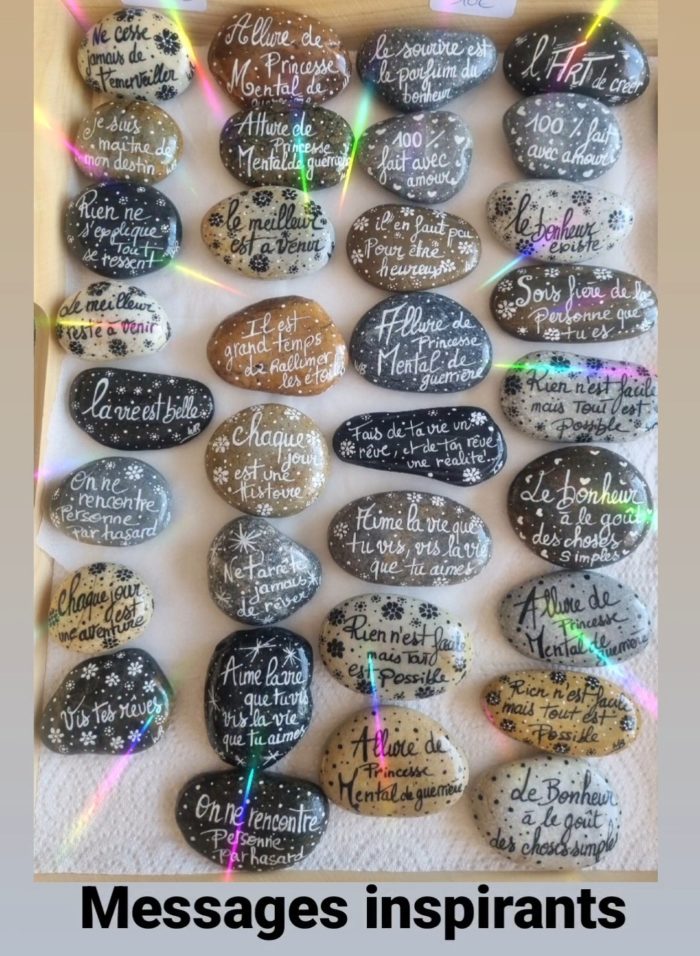 10€
Ne cesse
jamais de
t'emerveiller
Allure de
Princesse
Mental de
le sourire est
le parfum du
bonheur
l'ART de créer
Je suis
maître de
mon destin
Allure de
Princesse
Mental de guerrière
100%
fait avec
amour
100% fait
avec amour
Rien ne
s'explique
Tout
se ressent
le meilleur
est à venir
il en faut peu
Pour être
heureux
le bonheur
existe
Sois fière de la
Personne que
tu es
Le meilleur
reste à venir
Il est
grand temps
de Rallumer
les étoiles
Allure de
Princesse
Mental de
guerrière
Rien n'est facile
mais Tout est
Possible
la vie est belle
chaque
jour
est une
histoire
Fais de ta vie un
rêve, et de ton rêve
une réalité!
Le bonheur
à le goût
des choses
simples
On ne
rencontre
Personne
par hasard
Ne t'arrête
jamais
de rêver
Aime la vie que
tu vis, vis la vie
que tu aimes
Allure de
Princesse
Mental de guerrière
Chaque jour
est
une aventure
Rien n'est facile
mais Tout
est Possible
Vis tes rêves
Aime la vie
que tu vis
vis la vie
que tu aimes
Rien n'est facile
mais Tout est
Possible
Allure de
Princesse
Mental de guerrière
On ne rencontre
Personne
par hasard
Le Bonheur
à le goût
des choses simples
Messages inspirants